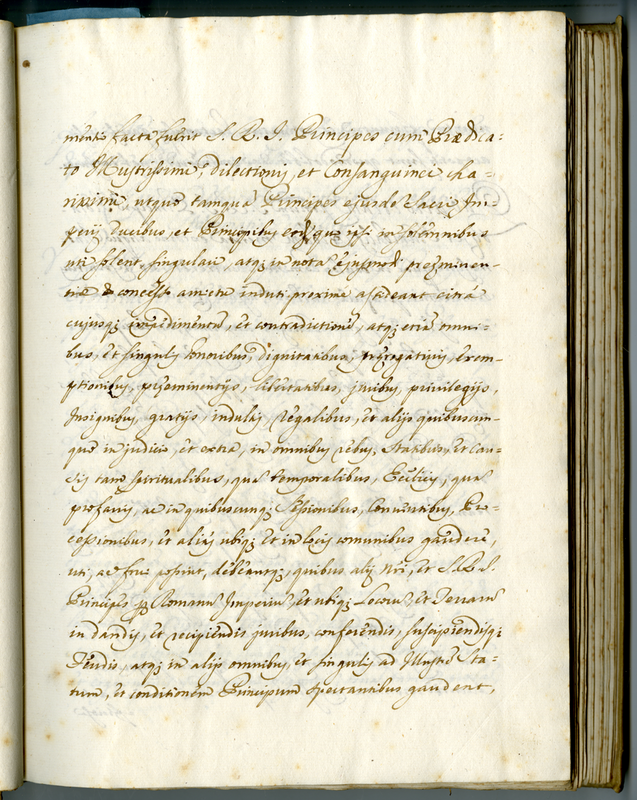 mento facta fuerit S. R. I. Principes cum Prædica-
to Illustrissimi, dilectionis, et Consanguinei cha-
rissimi, utque tamquã Principes ejusdẽ Sacri Im-
perij Ducibus, et Principibus qui ipsi in solemnibus
uti solent, singulari, atq; in nota ejusmodi præeminen-
tiæ & concesso amictu induti proxime assideant citrà
cujusq; impedimentũ, et contradictionẽ, atq; etiã omni-
bus, et singulis honoribus, dignitatibus, prærogativis, exem-
ptionibus, præeminentijs, libertatibus, juribus, privilegijs,
Insignibus, gratijs, indultis, Regalibus, et alijs quibuscun-
que in judicio, et extra, in omnibus rebus, Statibus, et Cau-
sis tam spiritualibus, quã temporalibus, Ecclicis, quã
profanis, ac in quibuscunq; Sessionibus, Conventibus, Pro-
cessionibus, et alias ubiq; et in locis comunibus gaudere,
uti, ac frui possint, debeantq;, quibus alij Nri, et S. R. I.
Principes per Romanũ Imperiũ, et ubiq; Locorũ, et Terrarũ
in dandis, et recipiendis juribus, conferendis, suscipiendisq;
Feudis, atq; in alijs omnibus, et singulis ad Illustrẽ Sta-
tum, et conditionem Principum spectantibus gaudent,